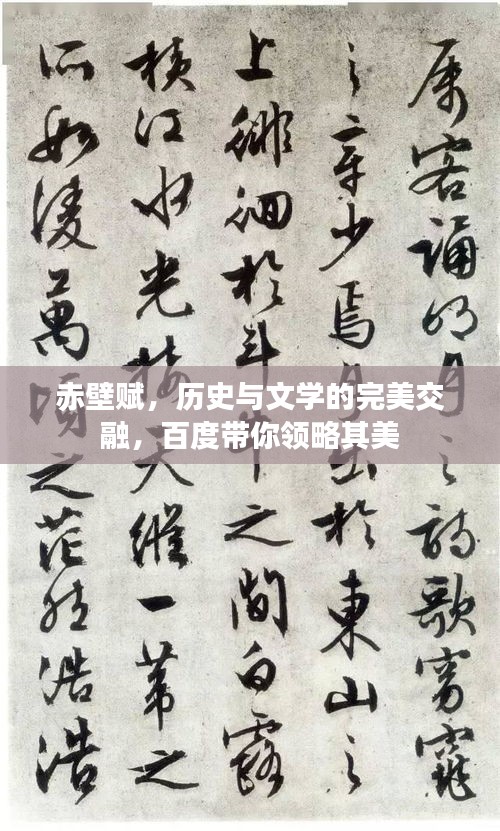 属客誦明月之詩歌窈窕
之章少焉月出於東山之
上徘徊於斗牛之間白露
橫江水光接天縱一葦之
所如凌萬頃之茫然浩浩
赤壁赋，历史与文学的完美交
融，百度带你领略其美